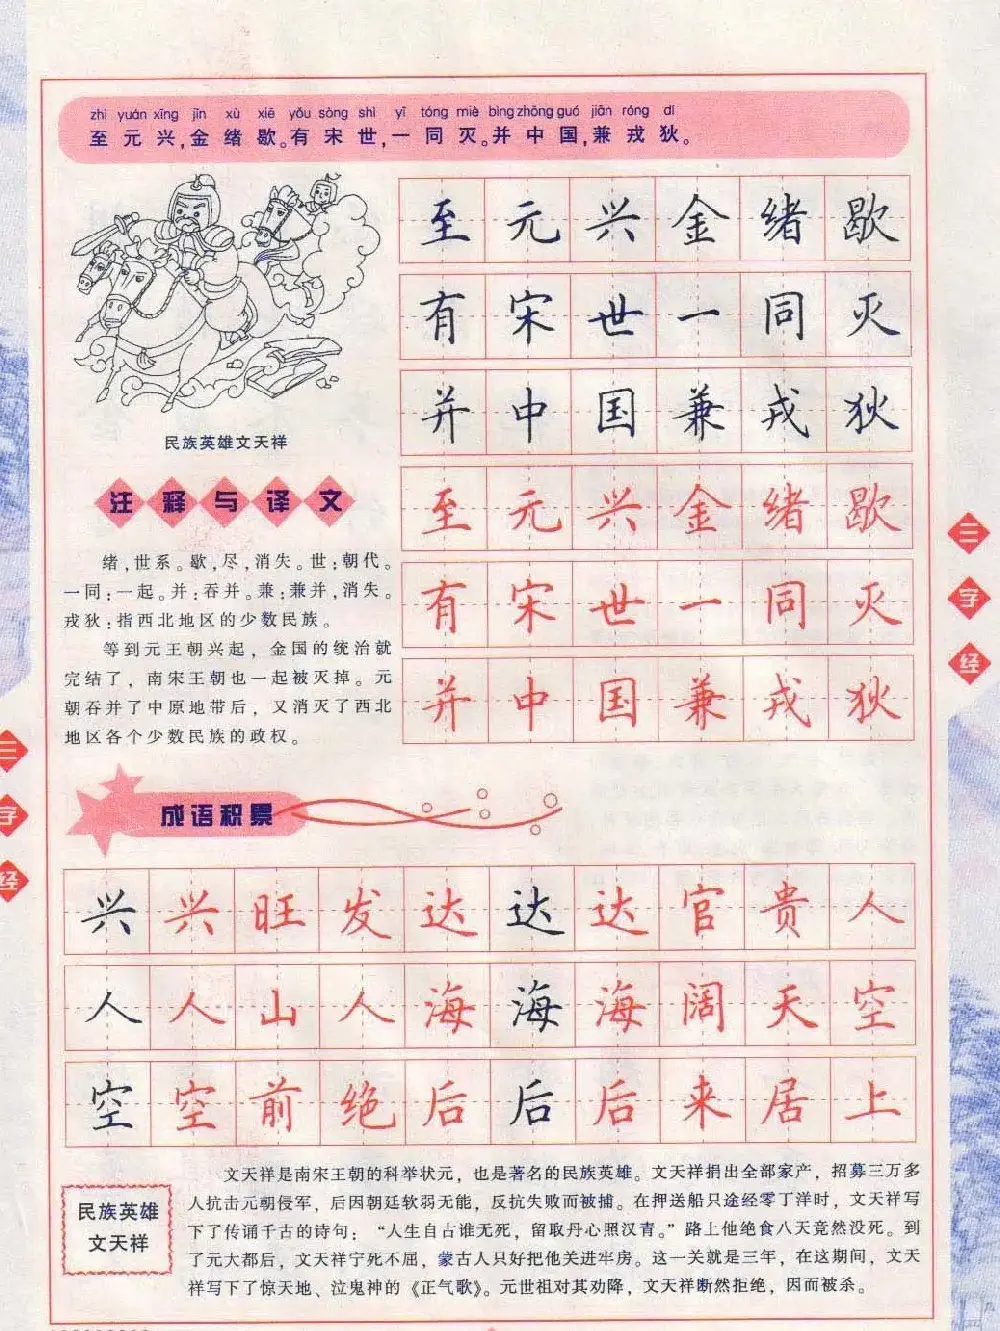 zhì yuán xīng jīn xù xiē yǒu sòng shì yī tóng miè bìng zhōng guó jiān róng dí
至元兴,金绪歇。有宋世,一同灭。并中国,兼戎狄。
至元兴金绪歇
有宋世一同灭
并中国兼戎狄
至元兴金绪歇
有宋世一同灭
并中国兼戎狄
民族英雄文天祥
注释与译文
绪,世系。歇,尽,消失。世:朝代。
一同:一起。并:吞并。兼:兼并,消失。
戎狄:指西北地区的少数民族。
等到元王朝兴起，金国的统治就
完结了，南宋王朝也一起被灭掉。元
朝吞并了中原地带后，又消灭了西北
地区各个少数民族的政权。
三字经
三字经
成语积累
兴兴旺发达达达官贵人
人人山人海海海阔天空
空空前绝后后后来居上
民族英雄
文天祥
文天祥是南宋王朝的科举状元，也是著名的民族英雄。文天祥捐出全部家产，招募三万多
人抗击元朝侵军，后因朝廷软弱无能，反抗失败而被捕。在押送船只途经零丁洋时，文天祥写
下了传诵千古的诗句：“人生自古谁无死，留取丹心照汗青。”路上他绝食八天竟然没死。到
了元大都后，文天祥宁死不屈，蒙古人只好把他关进牢房。这一关就是三年，在这期间，文天
祥写下了惊天地、泣鬼神的《正气歌》。元世祖对其劝降，文天祥断然拒绝，因而被杀。